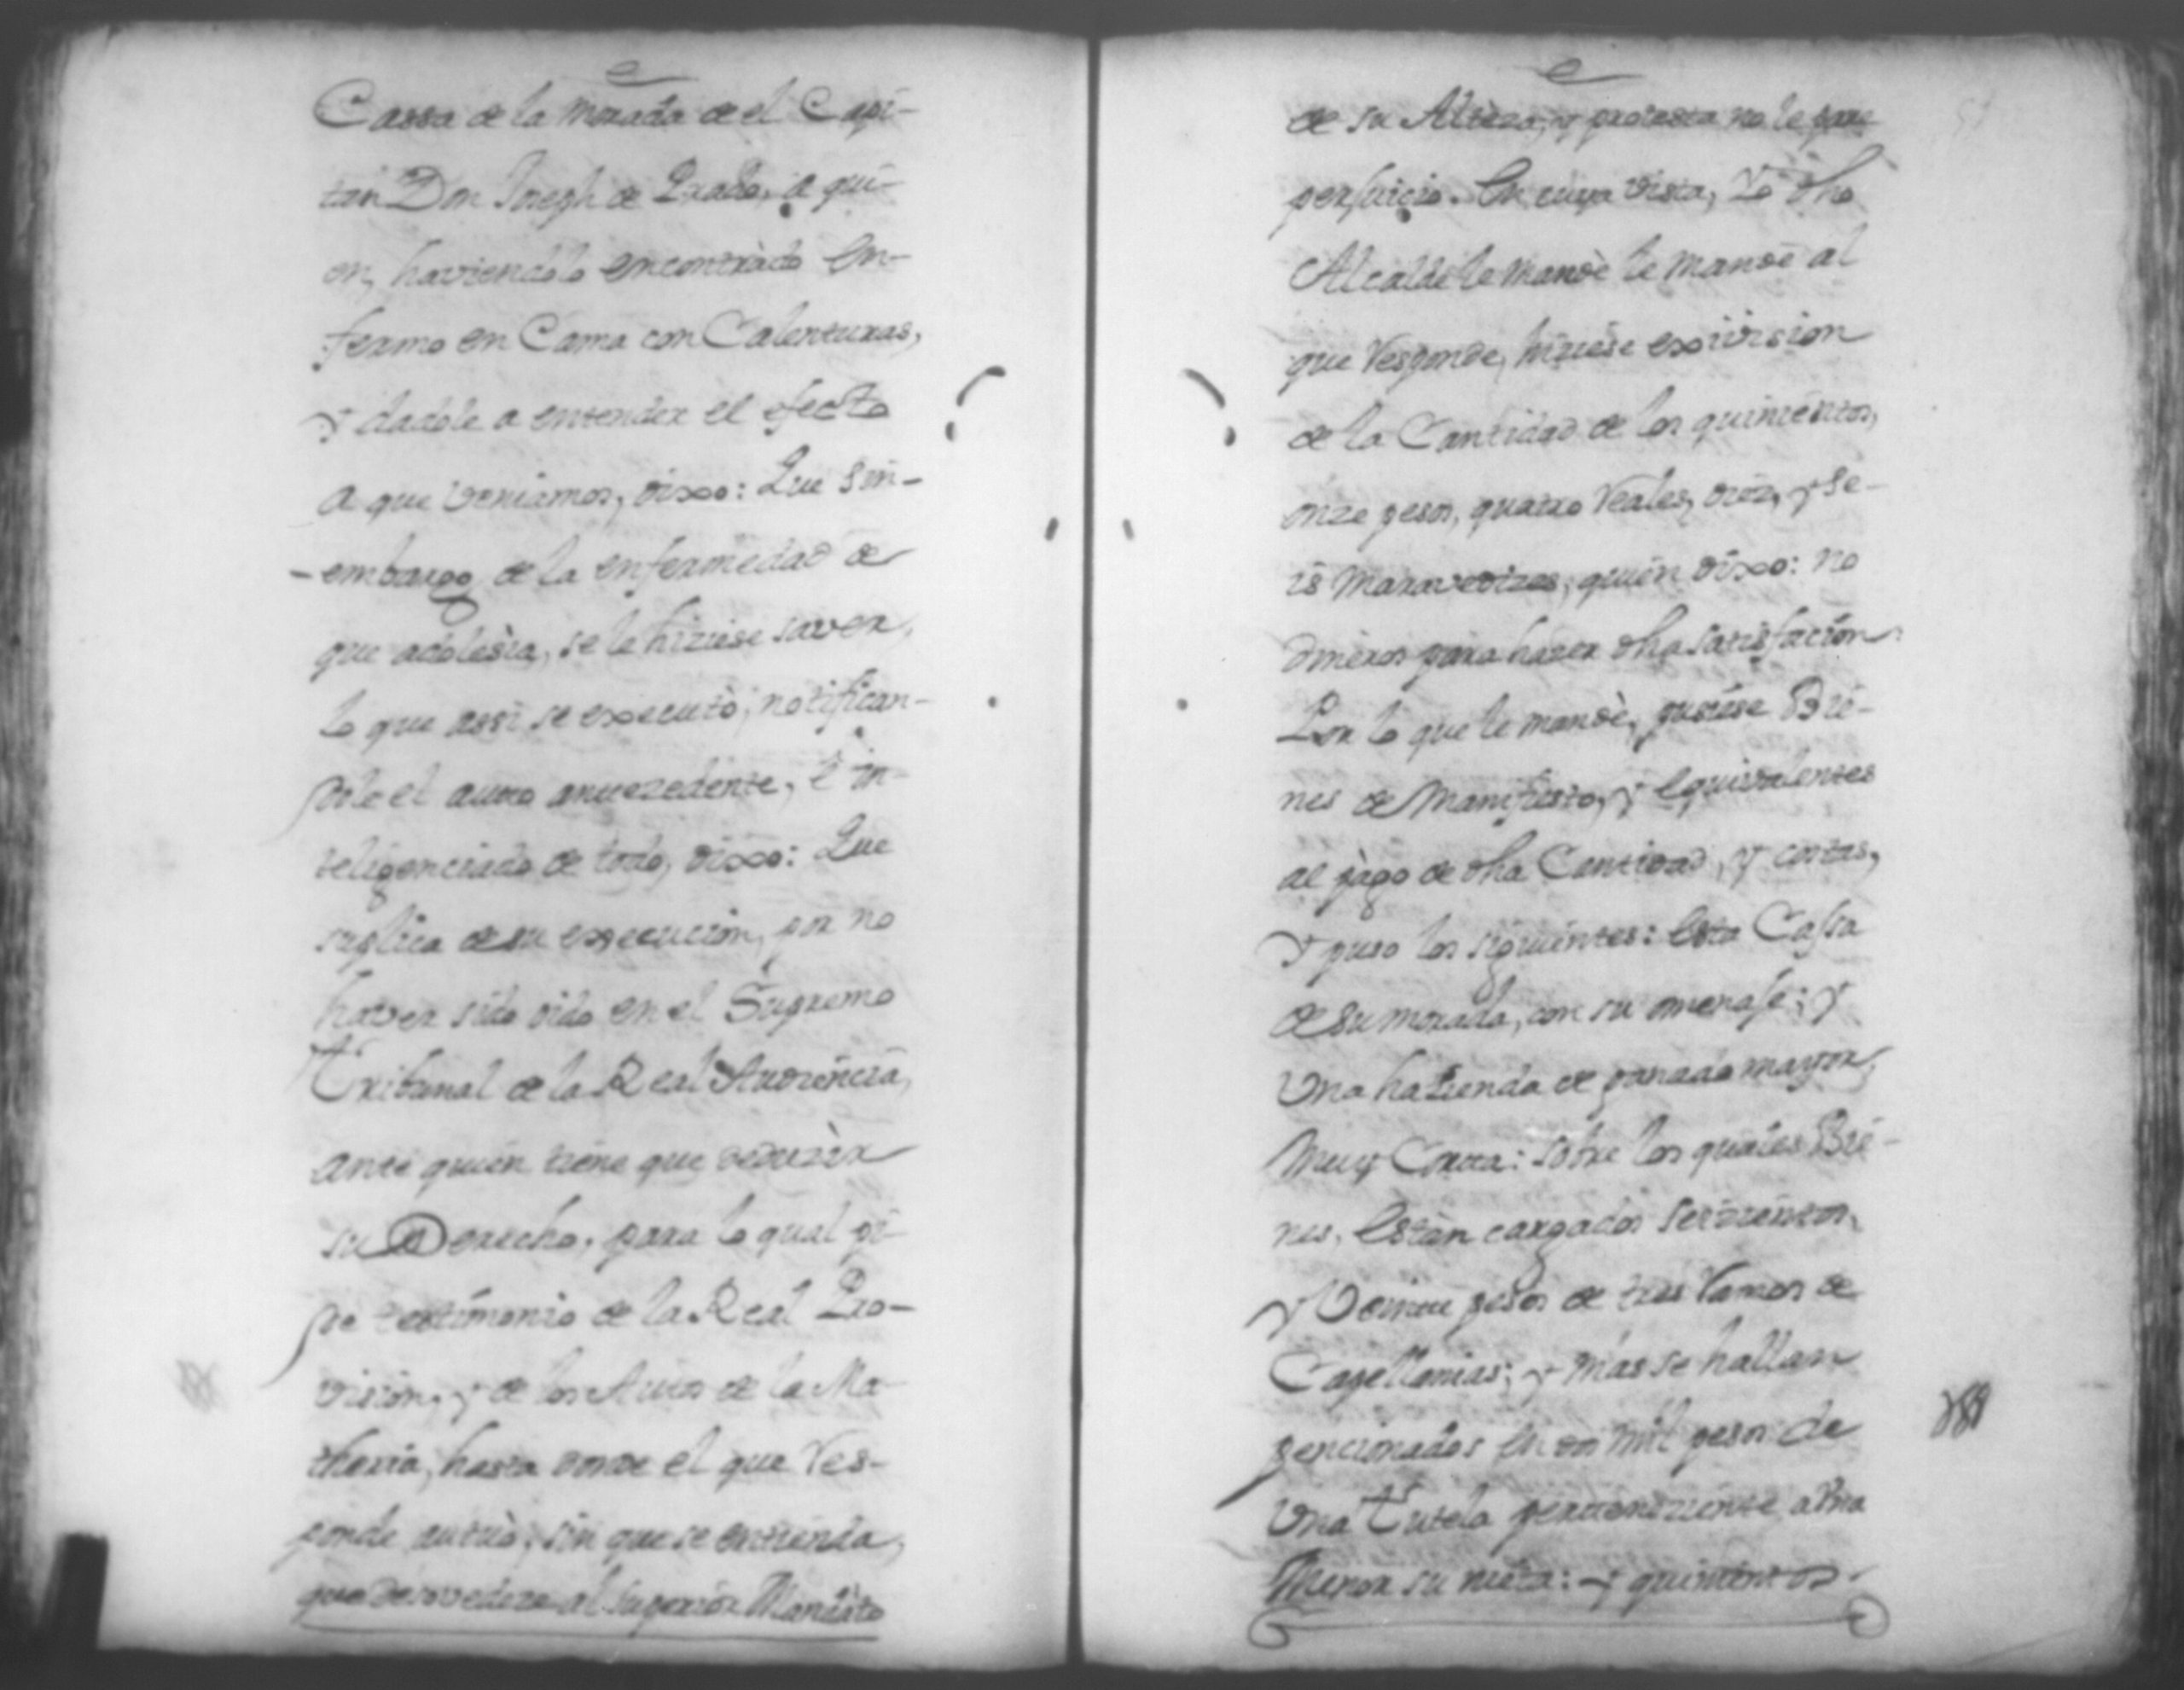 Cassa de la morada de el Capi-
tan Don Joseph de Prado, a qui-
en, haviendolo encontràdo en-
fermo en Cama con Calenturas,
y dadole a entender el efecto
a que veniamos, dixo: Que sin-
-embargo de la enfermedad de
que adolesìa, se le hiziese saver,
lo que assi se executò, notifican-
dole el auto antezedente, è in-
teligenciado de todo, dixo: Que
suplica de su execucion, por no
haver sido oido en el Supremo
Tribunal de la Real Audiencia,
ante quien tiene que deduzir
su Derecho, para lo qual pi-
de testimonio de la Real Pro-
vision, y de los Autos de la Ma-
theria, hasta donde el que Res-
ponde autuò, sin que se entienda,
que desovedeze al superior Mandato
de su Alteza, y protesta no le pare
perjuicio. En cuya vista, Yo dho
Alcalde le mandè le mandè al
que Responde, hiziese exivision
de la Cantidad de los quinientos,
onze pesos, quatro Reales, diez, y se-
is maravedizes, quien dixo: no
dineros para hazer dha satisfacion
Por lo que le mandè, pusiese Bie-
nes de Manifiesto, y equivalentes
al pàgo de dha Cantidad, y costas,
y puso los siguientes: Esta Cassa
de su morada, con su omenaje; y
Una hazienda de ganado mayor,
muy Corta: sobre los quales Bie-
nes, Estàn cargados setzientos,
y Veinte pesos de tres Ramos de
Capellanias; y mas se hallan
pencionados en dos mil pesos de
Una Tutela perteneziente a Una
Menor su nieta: y quinientos